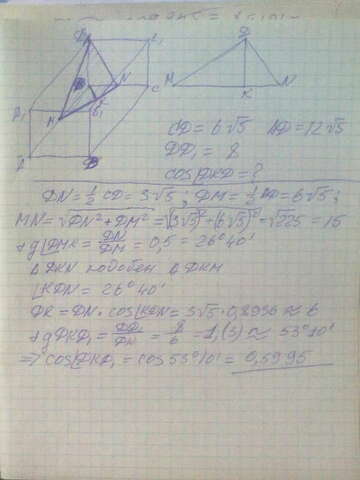 D₁
M
N
C
A₁
A
D
D
M
K
N
CD = 6√5 AD = 12√5
DD₁ = 8
cos∠DKD₁ = ?
DN = ½ CD = 3√5 ; DM = ½ AD = 6√5 ;
MN = √DN² + DM² = √(3√5)² + (6√5)² = √225 = 15
tg∠DMK = DN/DM = 0,5 = 26°40'
Δ DKN подобен Δ DKM
∠KDN = 26°40'
DK = DN · cos∠KDN = 3√5 · 0,8936 ≈ 6
tg∠DKD₁ = DD₁/DK = 8/6 = 1,(3) ≈ 53°10'
=> cos∠DKD₁ = cos 53°10' = 0,5995